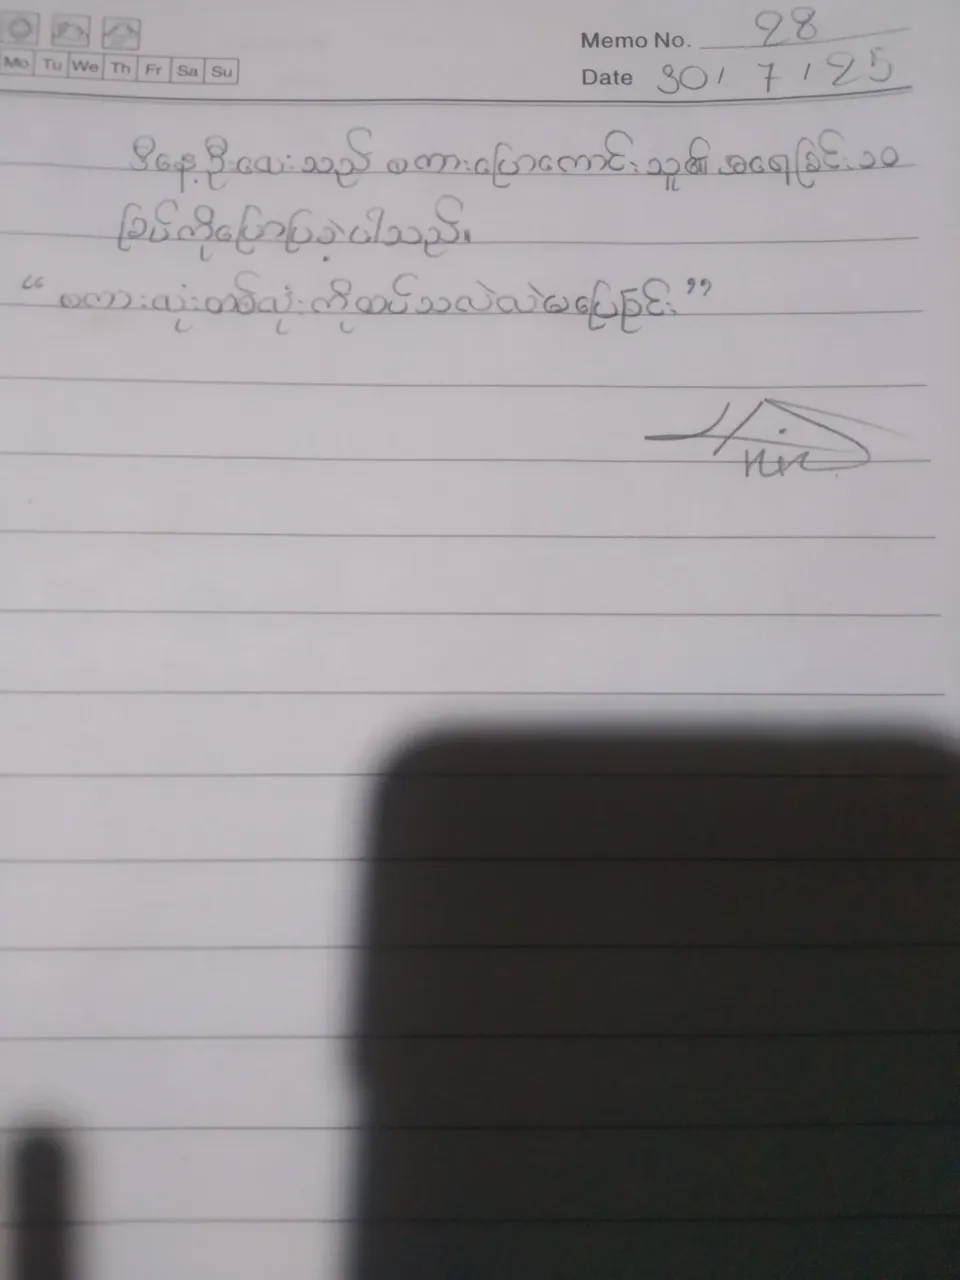 Memo No. 28
Mo Tu We Th Fr Sa Su
Date 30 / 7 / 25
ဒီနေ့ဦးလေးသည် စကားပြောကောင်းသူ၏အရေခြင်းသ
ခြပ်ကိုပြောပြခဲ့ပါသည်။
“ စကားလုံးတစ်လုံးကိုထပ်သလဲလဲမပြောခြင်း ”